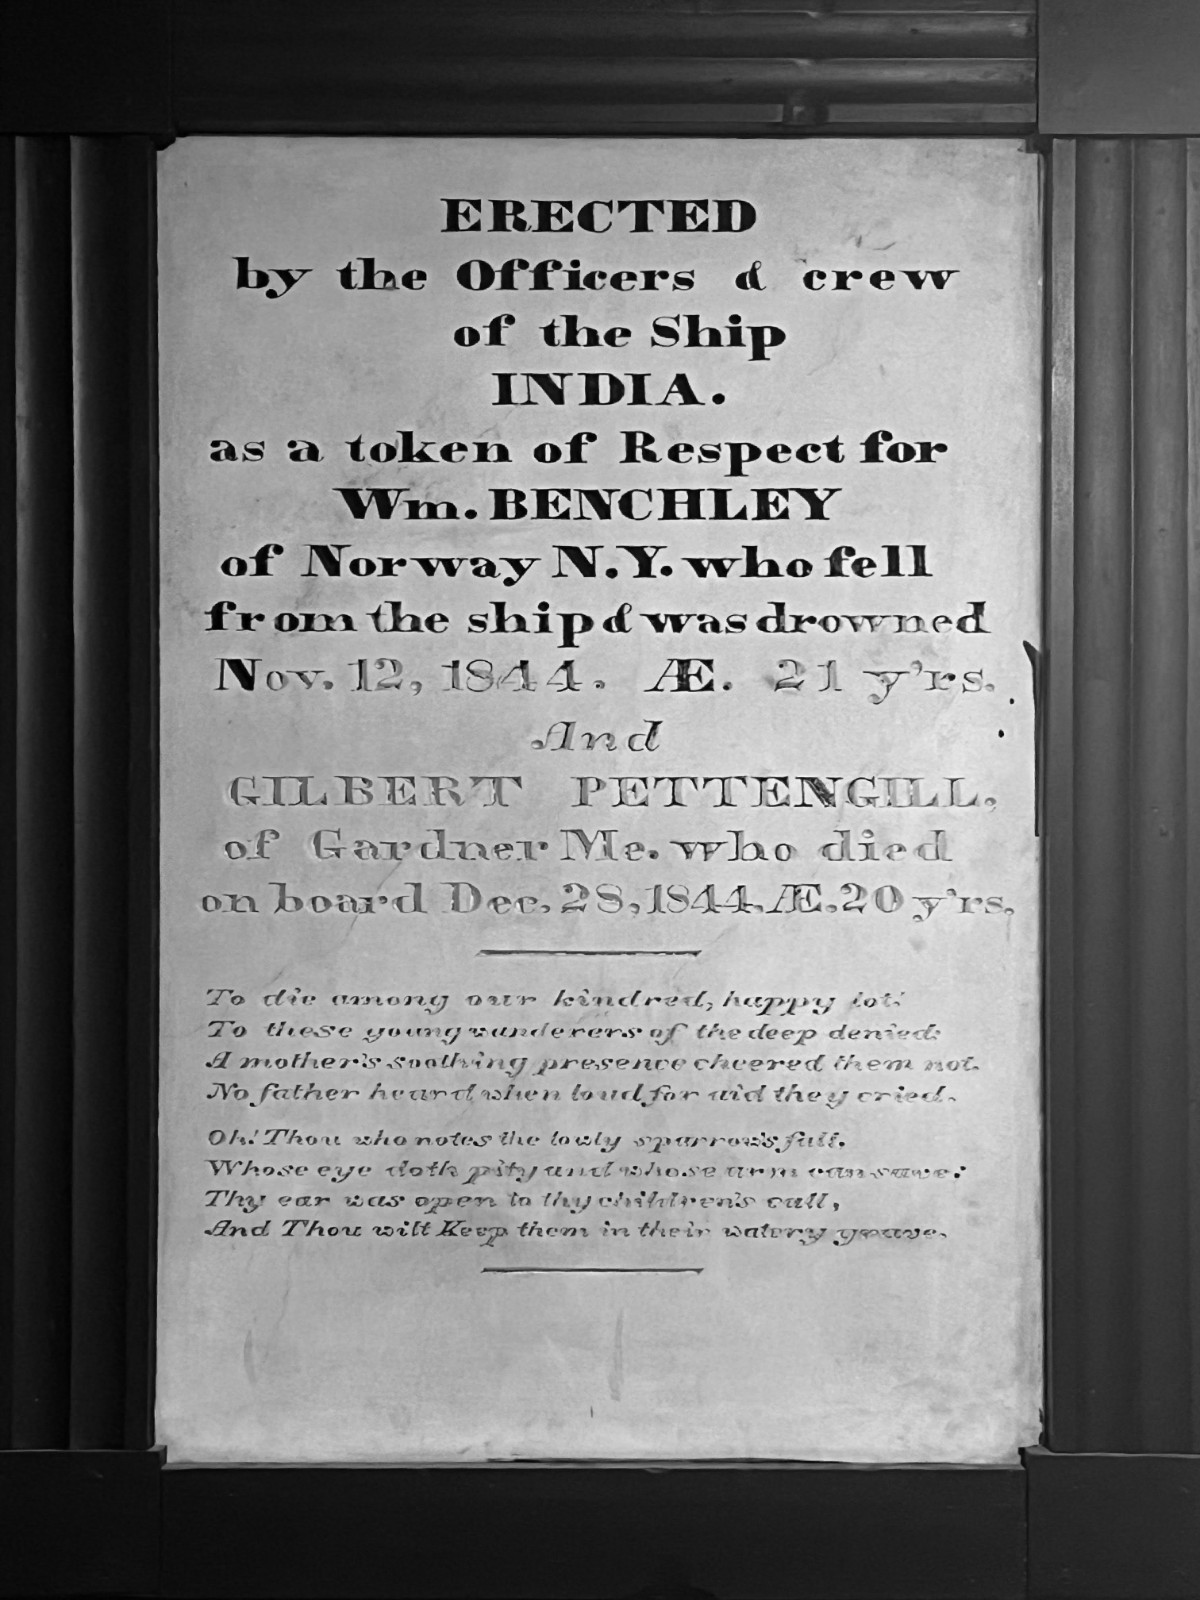 ERECTED
by the Officers & crew
of the Ship
INDIA.
as a token of Respect for
Wm. BENCHLEY
of Norway N.Y. who fell
from the ship & was drowned
Nov. 12, 1844. Æ. 21 y'rs.
And
GILBERT PETTENGILL,
of Gardner Me. who died
on board Dec. 28, 1844. Æ. 20 y'rs,
To die among our kindred, happy lot!
To these young wanderers of the deep denied:
A mother's soothing presence cheered them not.
No father heard when loud for aid they cried.
Oh! Thou who notes the lowly sparrow's fall.
Whose eye doth pity and whose arm can save:
Thy ear was open to thy children's call,
And Thou wilt Keep them in their watery grave.